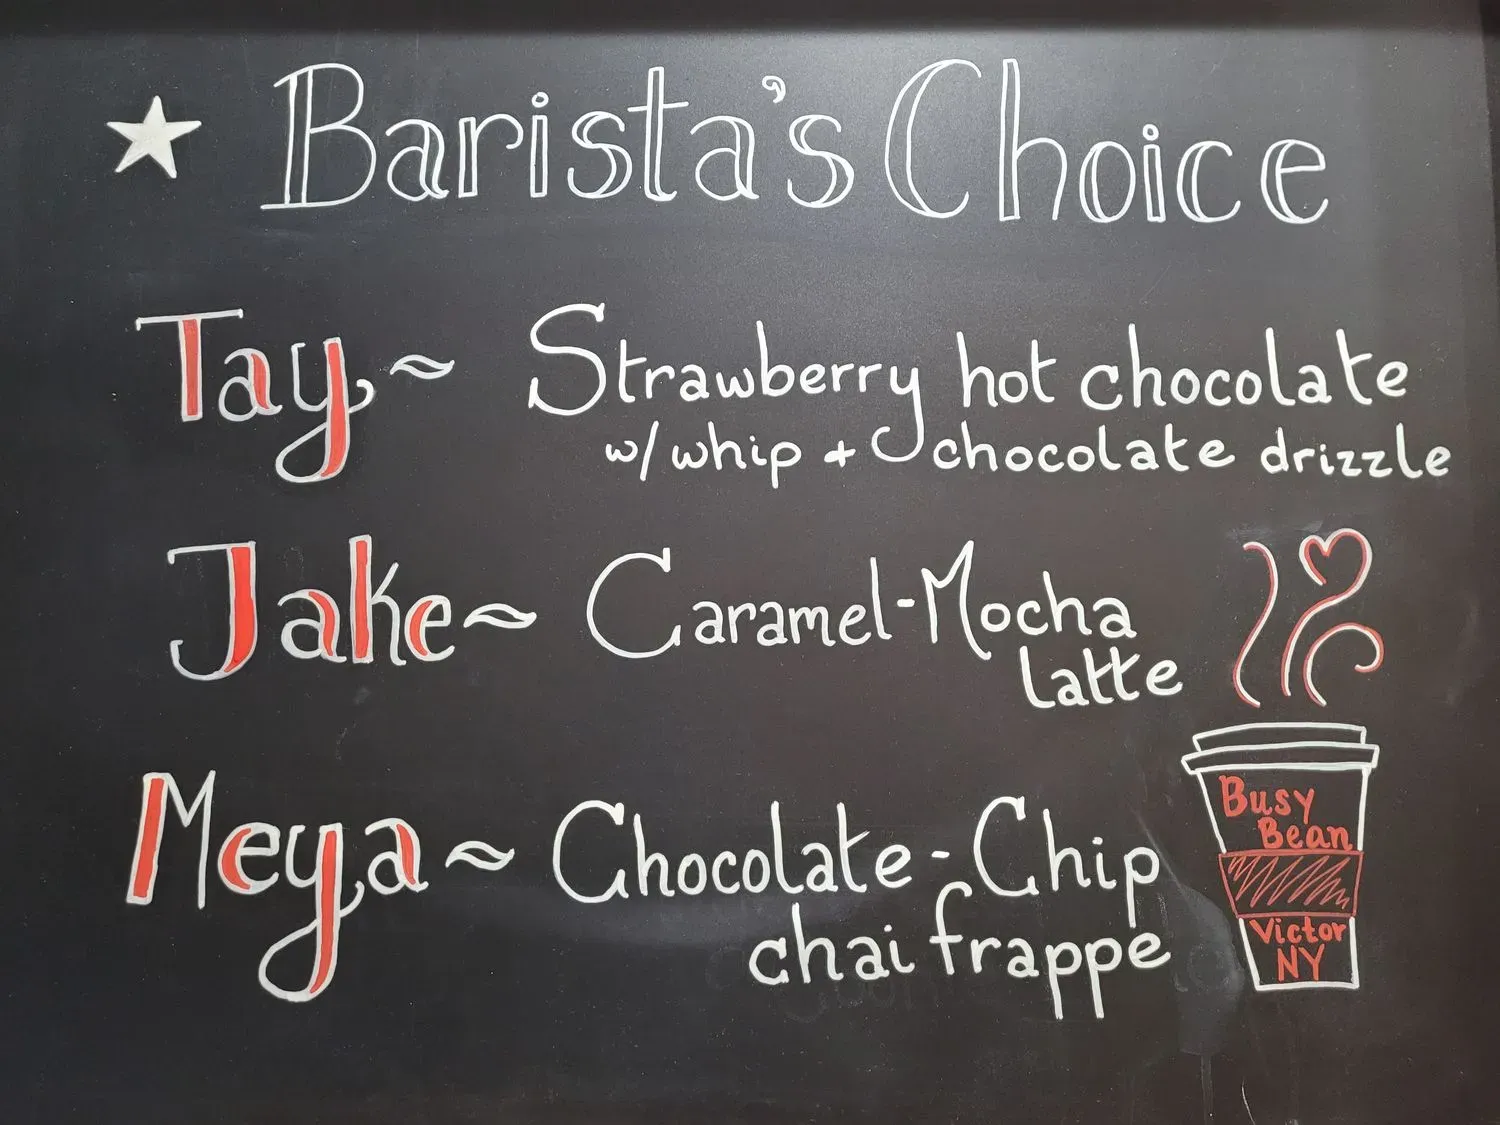 Barista's Choice
Tay ~ Strawberry hot chocolate
w/ whip + chocolate drizzle
Jake ~ Caramel-Mocha
latte
Meya ~ Chocolate-Chip
chai frappe
Busy
Bean
Victor
NY